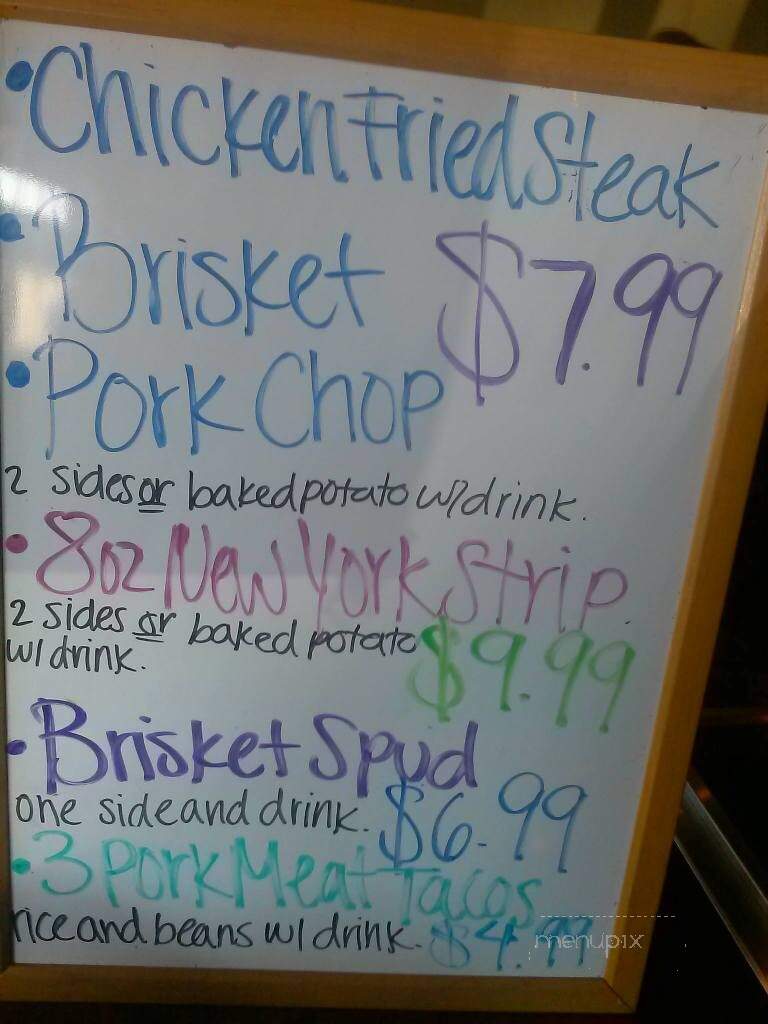 • Chicken Fried Steak
• Brisket $7.99
• Pork Chop
2 sides or baked potato w/ drink.
• 8oz New York Strip
2 sides or baked potato
w/ drink. $9.99
• Brisket Spud
one side and drink. $6.99
• 3 Pork Meat Tacos
rice and beans w/ drink.
menupix